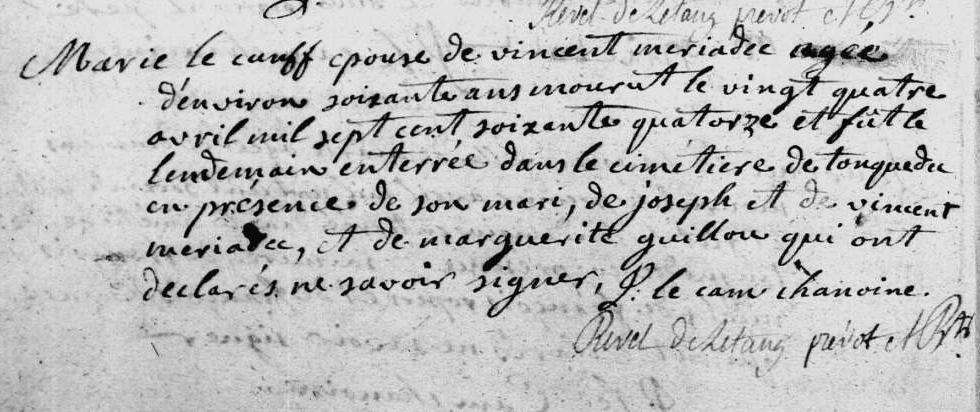 Revel de Letang prevot et
Marie le cauff epouse de vincent meriadec agée
d'environ soixante ans mourut le vingt quatre
avril mil sept cent soixante quatorze et fût le
lendemain enterrée dans le cimétiere de tonquedec
en présence de son mari, de joseph et de vincent
meriadec, et de marguerite guillou qui ont
declarés ne savoir signer, P. le cam chanoine.
Revel de Letang prevôt et